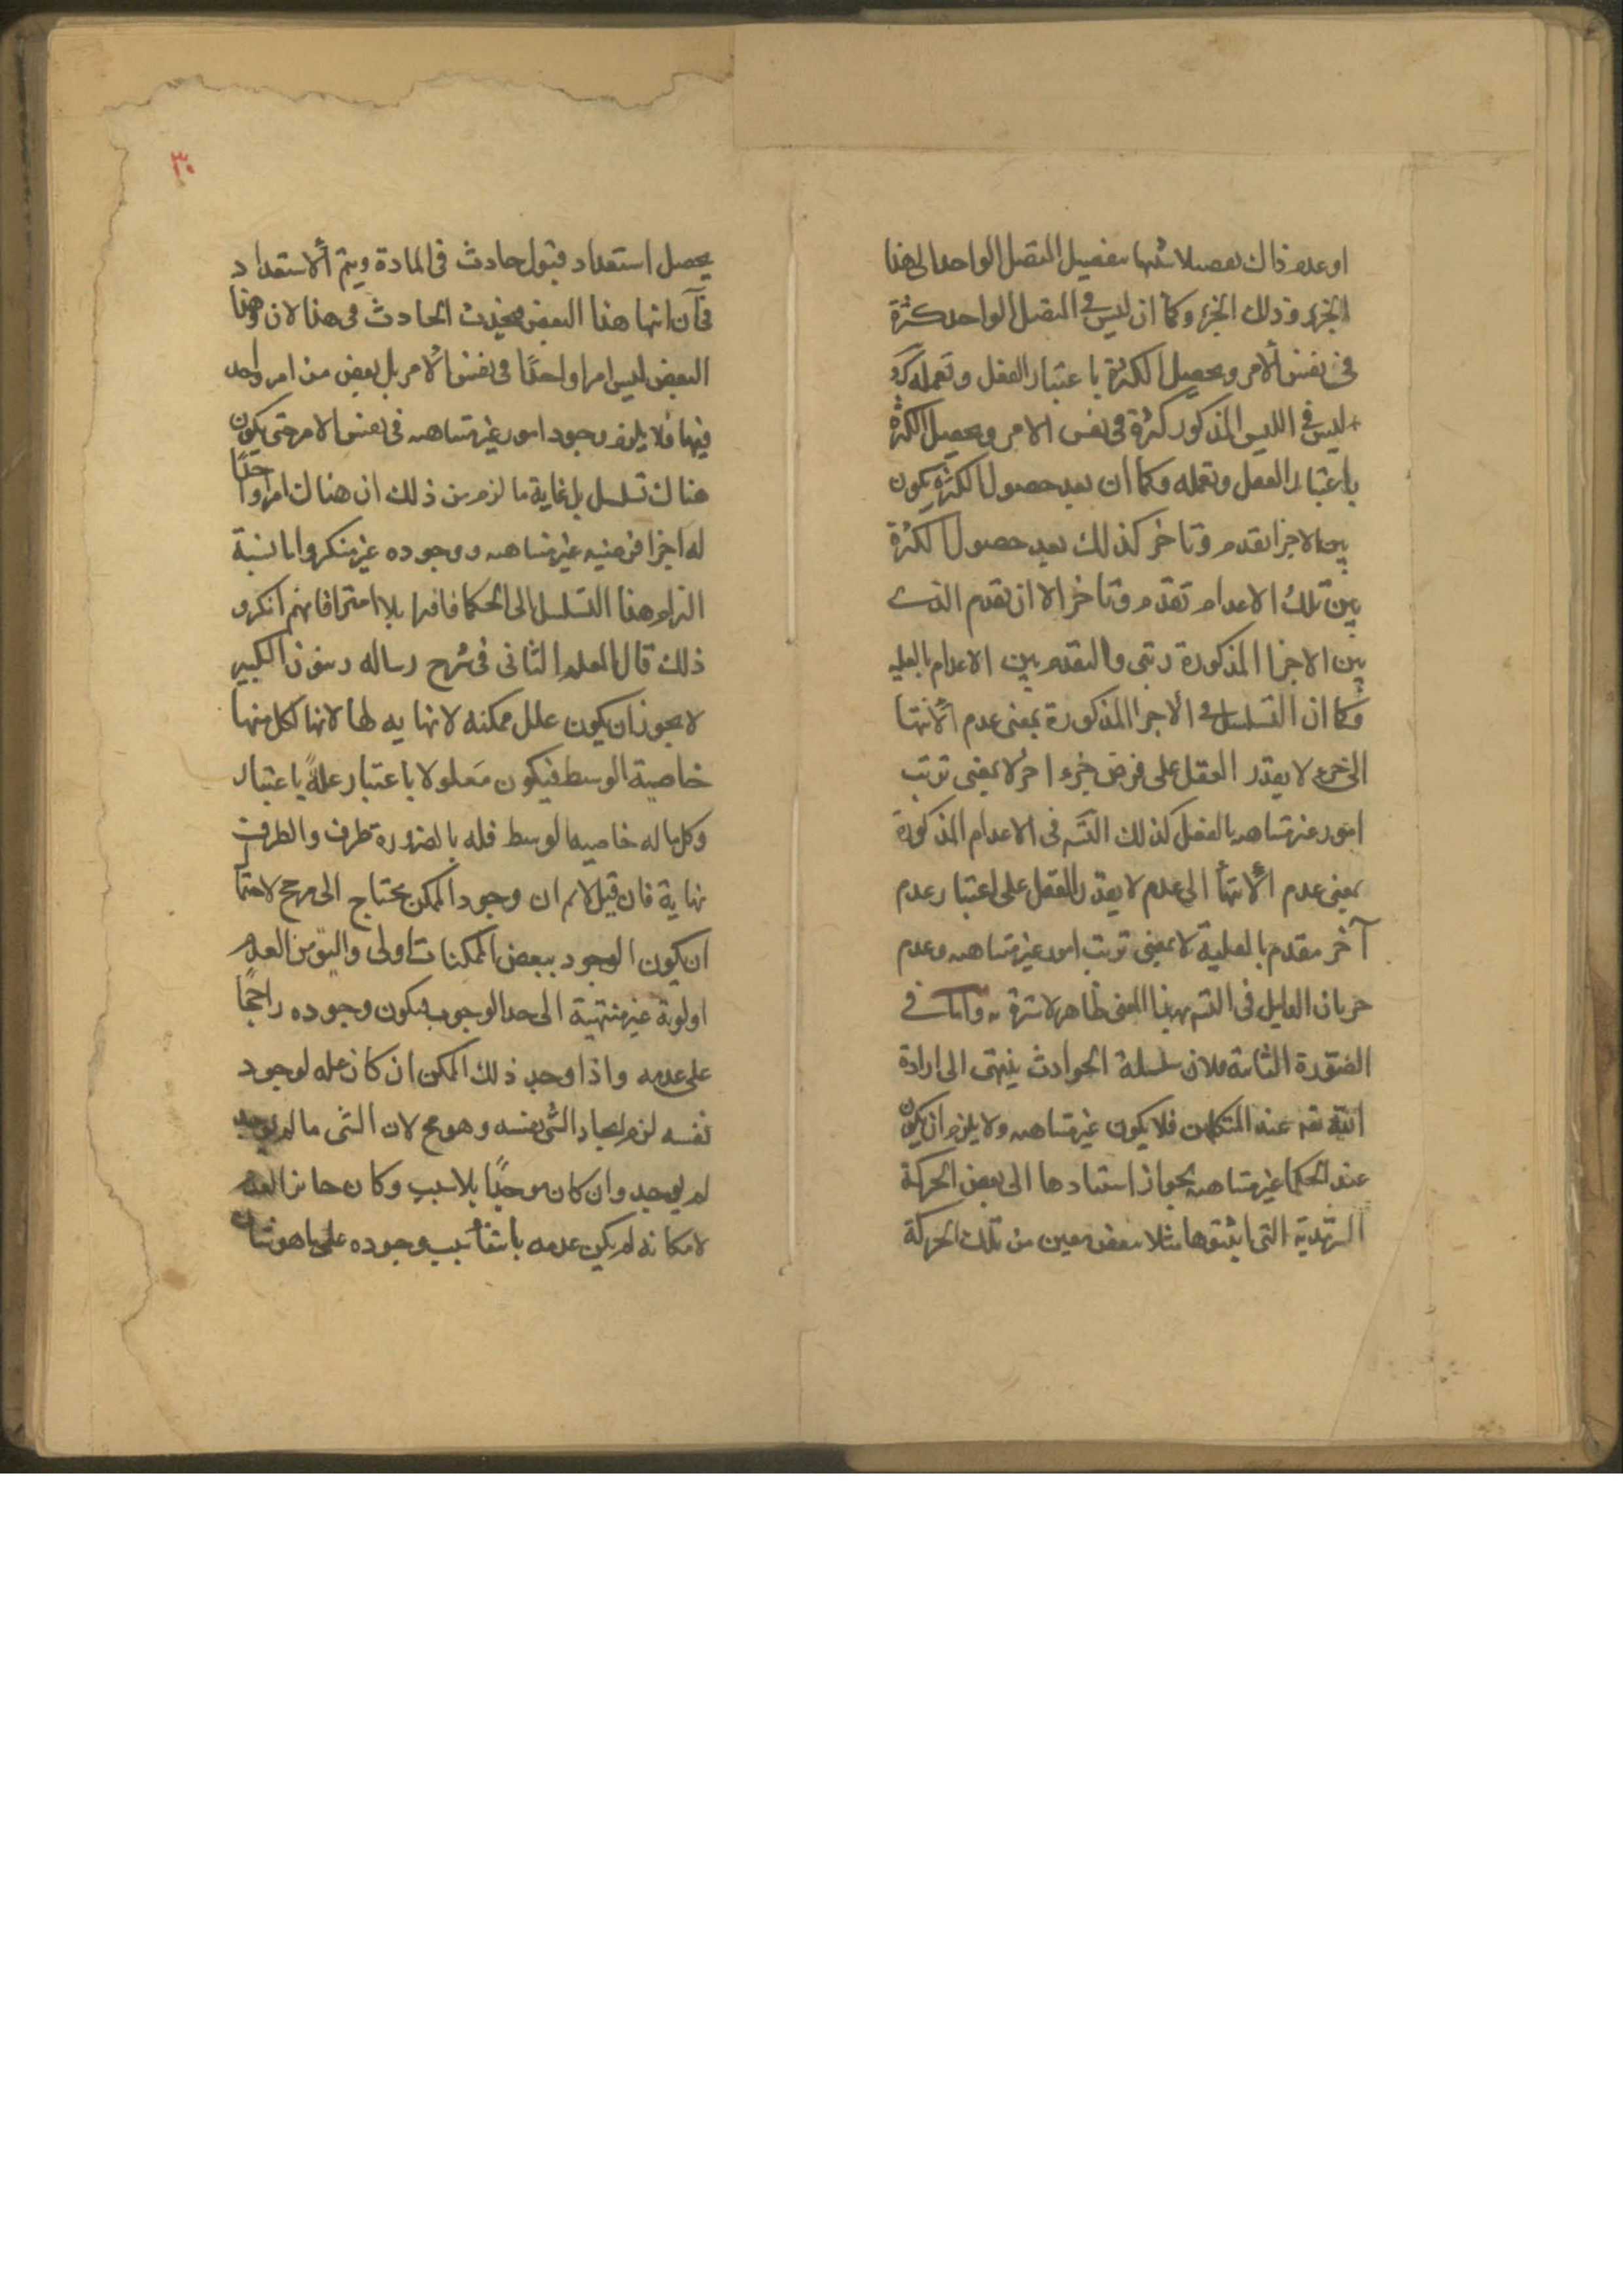 او عدم ذاك تفصيلا شبيها بتفصيل المتصل الواحد الى هذا
الجزء وذلك الجزء وكما ان ليس في المتصل الواحد كثرة
في نفس الامر ويحصل الكثرة باعتبار العقل وتعمله كذ
ليس في الليس المذكور كثرة في نفس الامر ويحصل الكثرة
باعتبار العقل وتعمله وكما ان بعد حصول الكثرة يكون
بين الاجزا تقدم وتاخر كذلك بعد حصول الكثرة
بين تلك الاعدام تقدم وتاخر الا ان تقدم الذي
بين الاجزا المذكورة رتبي والتقدم بين الاعدام بالعليه
وكما ان التسلسل في الاجزا المذكورة بمعنى عدم الانتها
الى جزء لا يقدر العقل على فرض جزء اخر لا بمعنى ترتب
امور غير متناهيه بالفعل كذلك التسـ في الاعدام المذكورة
بمعنى عدم الانتها الى عدم لا يقدر العقل على اعتبار عدم
آخر مقدم بالعلية لا بمعنى ترتب امور غير متناهيه وعدم
جريان الدليل في التسـ بهذا المعنى ظاهر لا سترة به واما في
الصورة الثانية فلان سلسلة الحوادث ينتهي الى ارادة
الله تعـ عند المتكلمين فلا يكون غير متناهيه ولا يلزم ان يكون
عند الحكما غير متناهيه بجواز استنادها الى بعض الحركة
السرمدية التي اثبتوها مثلا ببعض معين من تلك الحركة
٣٠
يحصل استعداد قبول حادث في المادة ويتم الاستعداد
في آن انتها هذا البعض فيحدث الحادث في هذا الان وهذا
البعض ليس امرا واحدًا في نفس الامر بل بعض من امر واحد
فيها فلا يلزم وجود امور غير متناهيه في نفس الامر حتى يكون
هناك تسلسل بل غاية ما لزم من ذلك ان هناك امرا واحدًا
له اجزا فرضيه غير متناهيه ووجوده غير منكر واما نسبة
التزام هذا التسلسل الى الحكما فافترا بلا امترا فانهم انكروا
ذلك قال المعلم الثاني في شرح رساله زينون الكبير
لا يجوز ان يكون علل ممكنه لا نهايه لها لانها لكل منها
خاصية الوسط فيكون معلولا باعتبار علةً باعتبار
وكل ما له خاصيه الوسط فله بالضرورة طرف والطرف
نهاية فان قيل لا نم ان وجود الممكن يحتاج الى مرجح لاحتما
ان يكون الوجود ببعض الممكنات اولى واليق من العدم
اولوية غير منتهية الى حد الوجوب فيكون وجوده راجحًا
على عدمه واذا وجد ذلك الممكن ان كان عله لوجود
نفسه لزم ايجاد الشي نفسه وهو مح لان الشي ما لم يوجد
لم يوجد وان كان موجدًا بلا سبب وكان جائز العدم
لامكانه لم يكن عدمه بانتفا سبب وجوده على ما هو شان